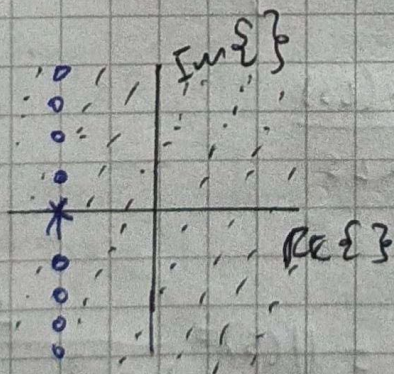 Im{}
Re{}